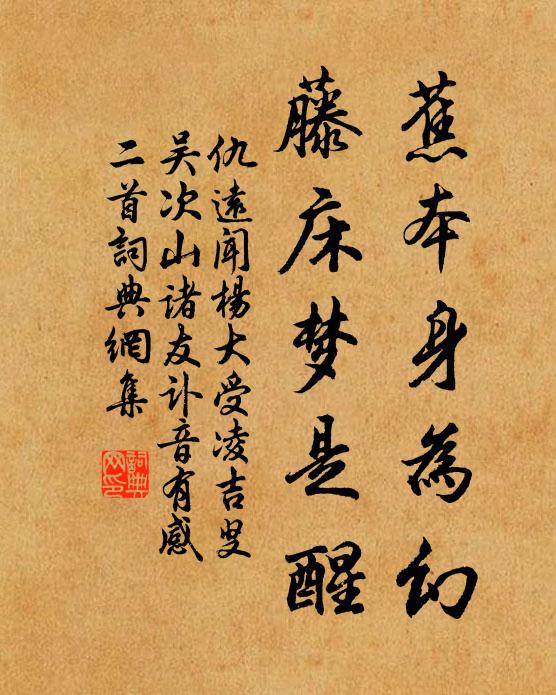 蕉本身為幻
藤床梦是醒
仇遠聞楊大受凌吉叟
吴次山诸友讣音有感
二首詞典網集
詞典网印